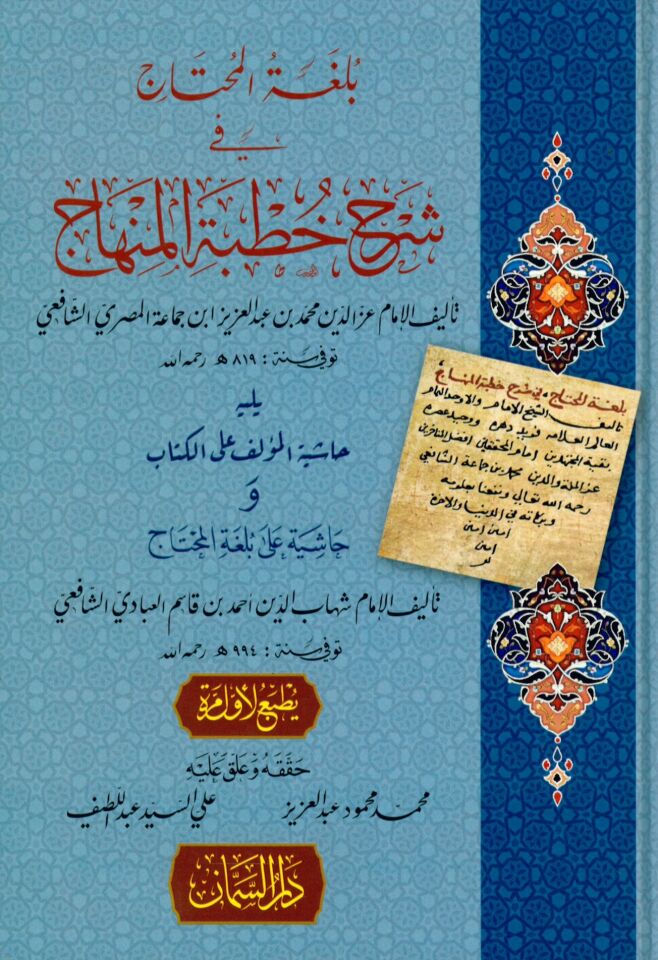 بُلغَةُ المُحتَاجِ
فِي
شَرْحِ خُطْبَةِ المِنْهَاجِ
تأليف الإمام عزّ الدّين محمد بن عبد العزيز ابن جماعة المصريّ الشّافعيّ
توفي سنة : ٨١٩ هـ رحمه الله
يليه
حاشية المؤلف على الكتاب
و
حَاشِيَة عَلَى بُلغَة المحْتَاج
تأليف الإمام شهاب الدين أحمد بن قاسم العباديّ الشافعيّ
توفي سنة : ٩٩٤ هـ رحمه الله
يُطبَعُ لأوّل مرة
حَقَّقَهُ وَعَلَّقَ عَلَيْهِ
محمد محمود عبد العزيز علي السيد عبد اللطيف
دَارُ السَّمَّان
بلغة المحتاج في شرح خطبة المنهاج
تاليف الشيخ الامام والاوحد الهمام
العالم العلامه فريد دهره ووحيد عصره
بقية المجتهدين امام المحققين افضل المتاخرين
عز الملة والدين محمد بن جماعة الشافعي
رحمه الله تعالى ونفعنا بعلومه
وبركاته في الدنيا والاخرة
امين امين
امين